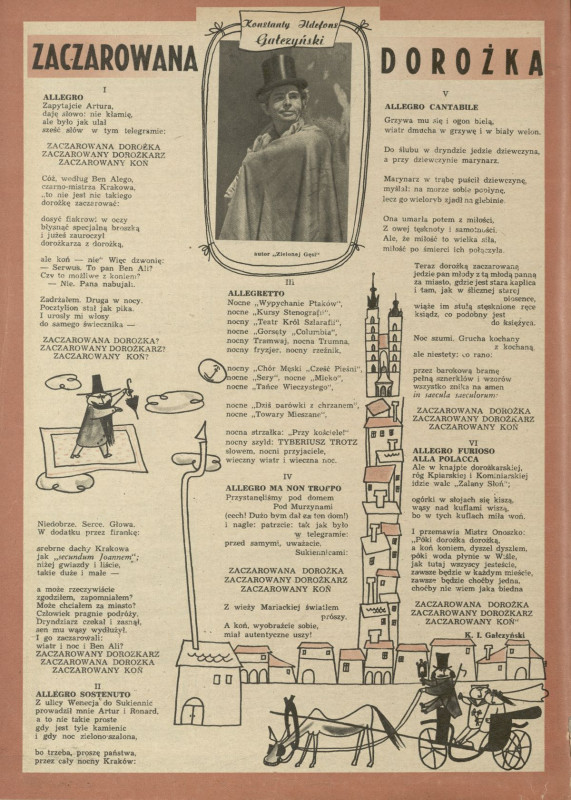 Konstanty Ildefons
Gałczyński
ZACZAROWANA DOROŻKA
autor „Zielonej Gęsi"
I
ALLEGRO
Zapytajcie Artura,
daję słowo: nie kłamię,
ale było jak ulał
sześć słów w tym telegramie:
ZACZAROWANA DOROŻKA
ZACZAROWANY DOROŻKARZ
ZACZAROWANY KOŃ.
Cóż, według Ben Alego,
czarno-mistrza Krakowa,
„to nie jest nic takiego
dorożkę zaczarować:
dosyć fiakrowi w oczy
błysnąć specjalną broszką
i jużeś zauroczył
dorożkarza z dorożką,
ale koń — nie" Więc dzwonię:
— Serwus. To pan Ben Ali?
Czy to możliwe z koniem?
— Nie. Pana nabujali.
Zadrżałem. Druga w nocy.
Pocztylion stał jak pika.
I urosły mi włosy
do samego świecznika —
ZACZAROWANA DOROŻKA?
ZACZAROWANY DOROŻKARZ?
ZACZAROWANY KOŃ?
Niedobrze. Serce. Głowa.
W dodatku przez firankę:
srebrne dachy Krakowa
jak „secundum Joannem";
niżej gwiazdy i liście,
takie duże i małe —
a może rzeczywiście
zgodziłem, zapomniałem?
Może chciałem za miasto?
Człowiek pragnie podróży.
Dryndziarz czekał i zasnął,
sen mu wąsy wydłużył.
I go zaczarowali:
wiatr i noc i Ben Ali?
ZACZAROWANY DOROŻKARZ
ZACZAROWANA DOROŻKA
ZACZAROWANY KOŃ.
II
ALLEGRO SOSTENUTO
Z ulicy Wenecja do Sukiennic
prowadził mnie Artur i Ronard,
a to nie takie proste
gdy jest tyle kamienic
i gdy noc zielono-szalona,
bo trzeba, proszę państwa,
przez cały nocny Kraków:
III
ALLEGRETTO
Nocne „Wypychanie Ptaków",
nocne „Kursy Stenografii",
nocny „Teatr Król Szlarafii",
nocne „Gorsety „Columbia",
nocny Tramwaj, nocna Trumna,
nocny fryzjer, nocny rzeźnik,
nocny „Chór Męski „Cześć Pieśni",
nocne „Sery", nocne „Mleko",
nocne „Tańce Wieczystego",
nocne „Dziś parówki z chrzanem",
nocne „Towary Mieszane",
nocna strzałka: „Przy kościele!"
nocny szyld: TYBERIUSZ TROTZ
słowem, nocni przyjaciele,
wieczny wiatr i wieczna noc.
IV
ALLEGRO MA NON TROPPO
Przystanęliśmy pod domem
Pod Murzynami
(eech! Dużo bym dał za ten dom!)
i nagle: patrzcie: tak jak było
w telegramie:
przed samymi, uważacie.
Sukiennicami:
ZACZAROWANA DOROŻKA
ZACZAROWANY DOROŻKARZ
ZACZAROWANY KOŃ.
Z wieży Mariackiej światłem
prószy.
A koń, wyobraźcie sobie,
miał autentyczne uszy!
V
ALLEGRO CANTABILE
Grzywa mu się i ogon bielą,
wiatr dmucha w grzywę i w biały welon.
Do ślubu w dryndzie jedzie dziewczyna,
a przy dziewczynie marynarz.
Marynarz w trąbę puścił dziewczynę,
myślał: na morze sobie popłynę,
lecz go wieloryb zjadł na głębinie.
Ona umarła potem z miłości,
Z owej tęsknoty i samotności.
Ale, że miłość to wielka siła,
miłość po śmierci ich połączyła.
Teraz dorożką zaczarowaną
jedzie pan młody z tą młodą panną
za miasto, gdzie jest stara kaplica
i tam, jak w ślicznej starej
piosence,
wiąże im stułą stęsknione ręce
ksiądz, co podobny jest
do księżyca.
Noc szumi. Grucha kochany
z kochaną,
ale niestety: co rano:
przez barokową bramę
pełną sznerklów i wzorów
wszystko znika na amen
in saecula saeculorum:
ZACZAROWANA DOROŻKA
ZACZAROWANY DOROŻKARZ
ZACZAROWANY KOŃ
VI
ALLEGRO FURIOSO
ALLA POLACCA
Ale w knajpie dorożkarskiej,
róg Kpiarskiej i Kominiarskiej
idzie walc „Zalany Słoń";
ogórki w słojach się kiszą,
wąsy nad kuflami wiszą,
bo w tych kuflach miła woń.
I przemawia Mistrz Onoszko:
„Póki dorożka dorożką,
a koń koniem, dyszel dyszlem,
póki woda płynie w Wiśle,
jak tutaj wszyscy jesteście,
zawsze będzie w każdym mieście,
zawsze będzie choćby jedna,
choćby nie wiem jaka biedna
ZACZAROWANA DOROŻKA
ZACZAROWANY DOROŻKARZ
ZACZAROWANY KOŃ"
K. I. Gałczyński